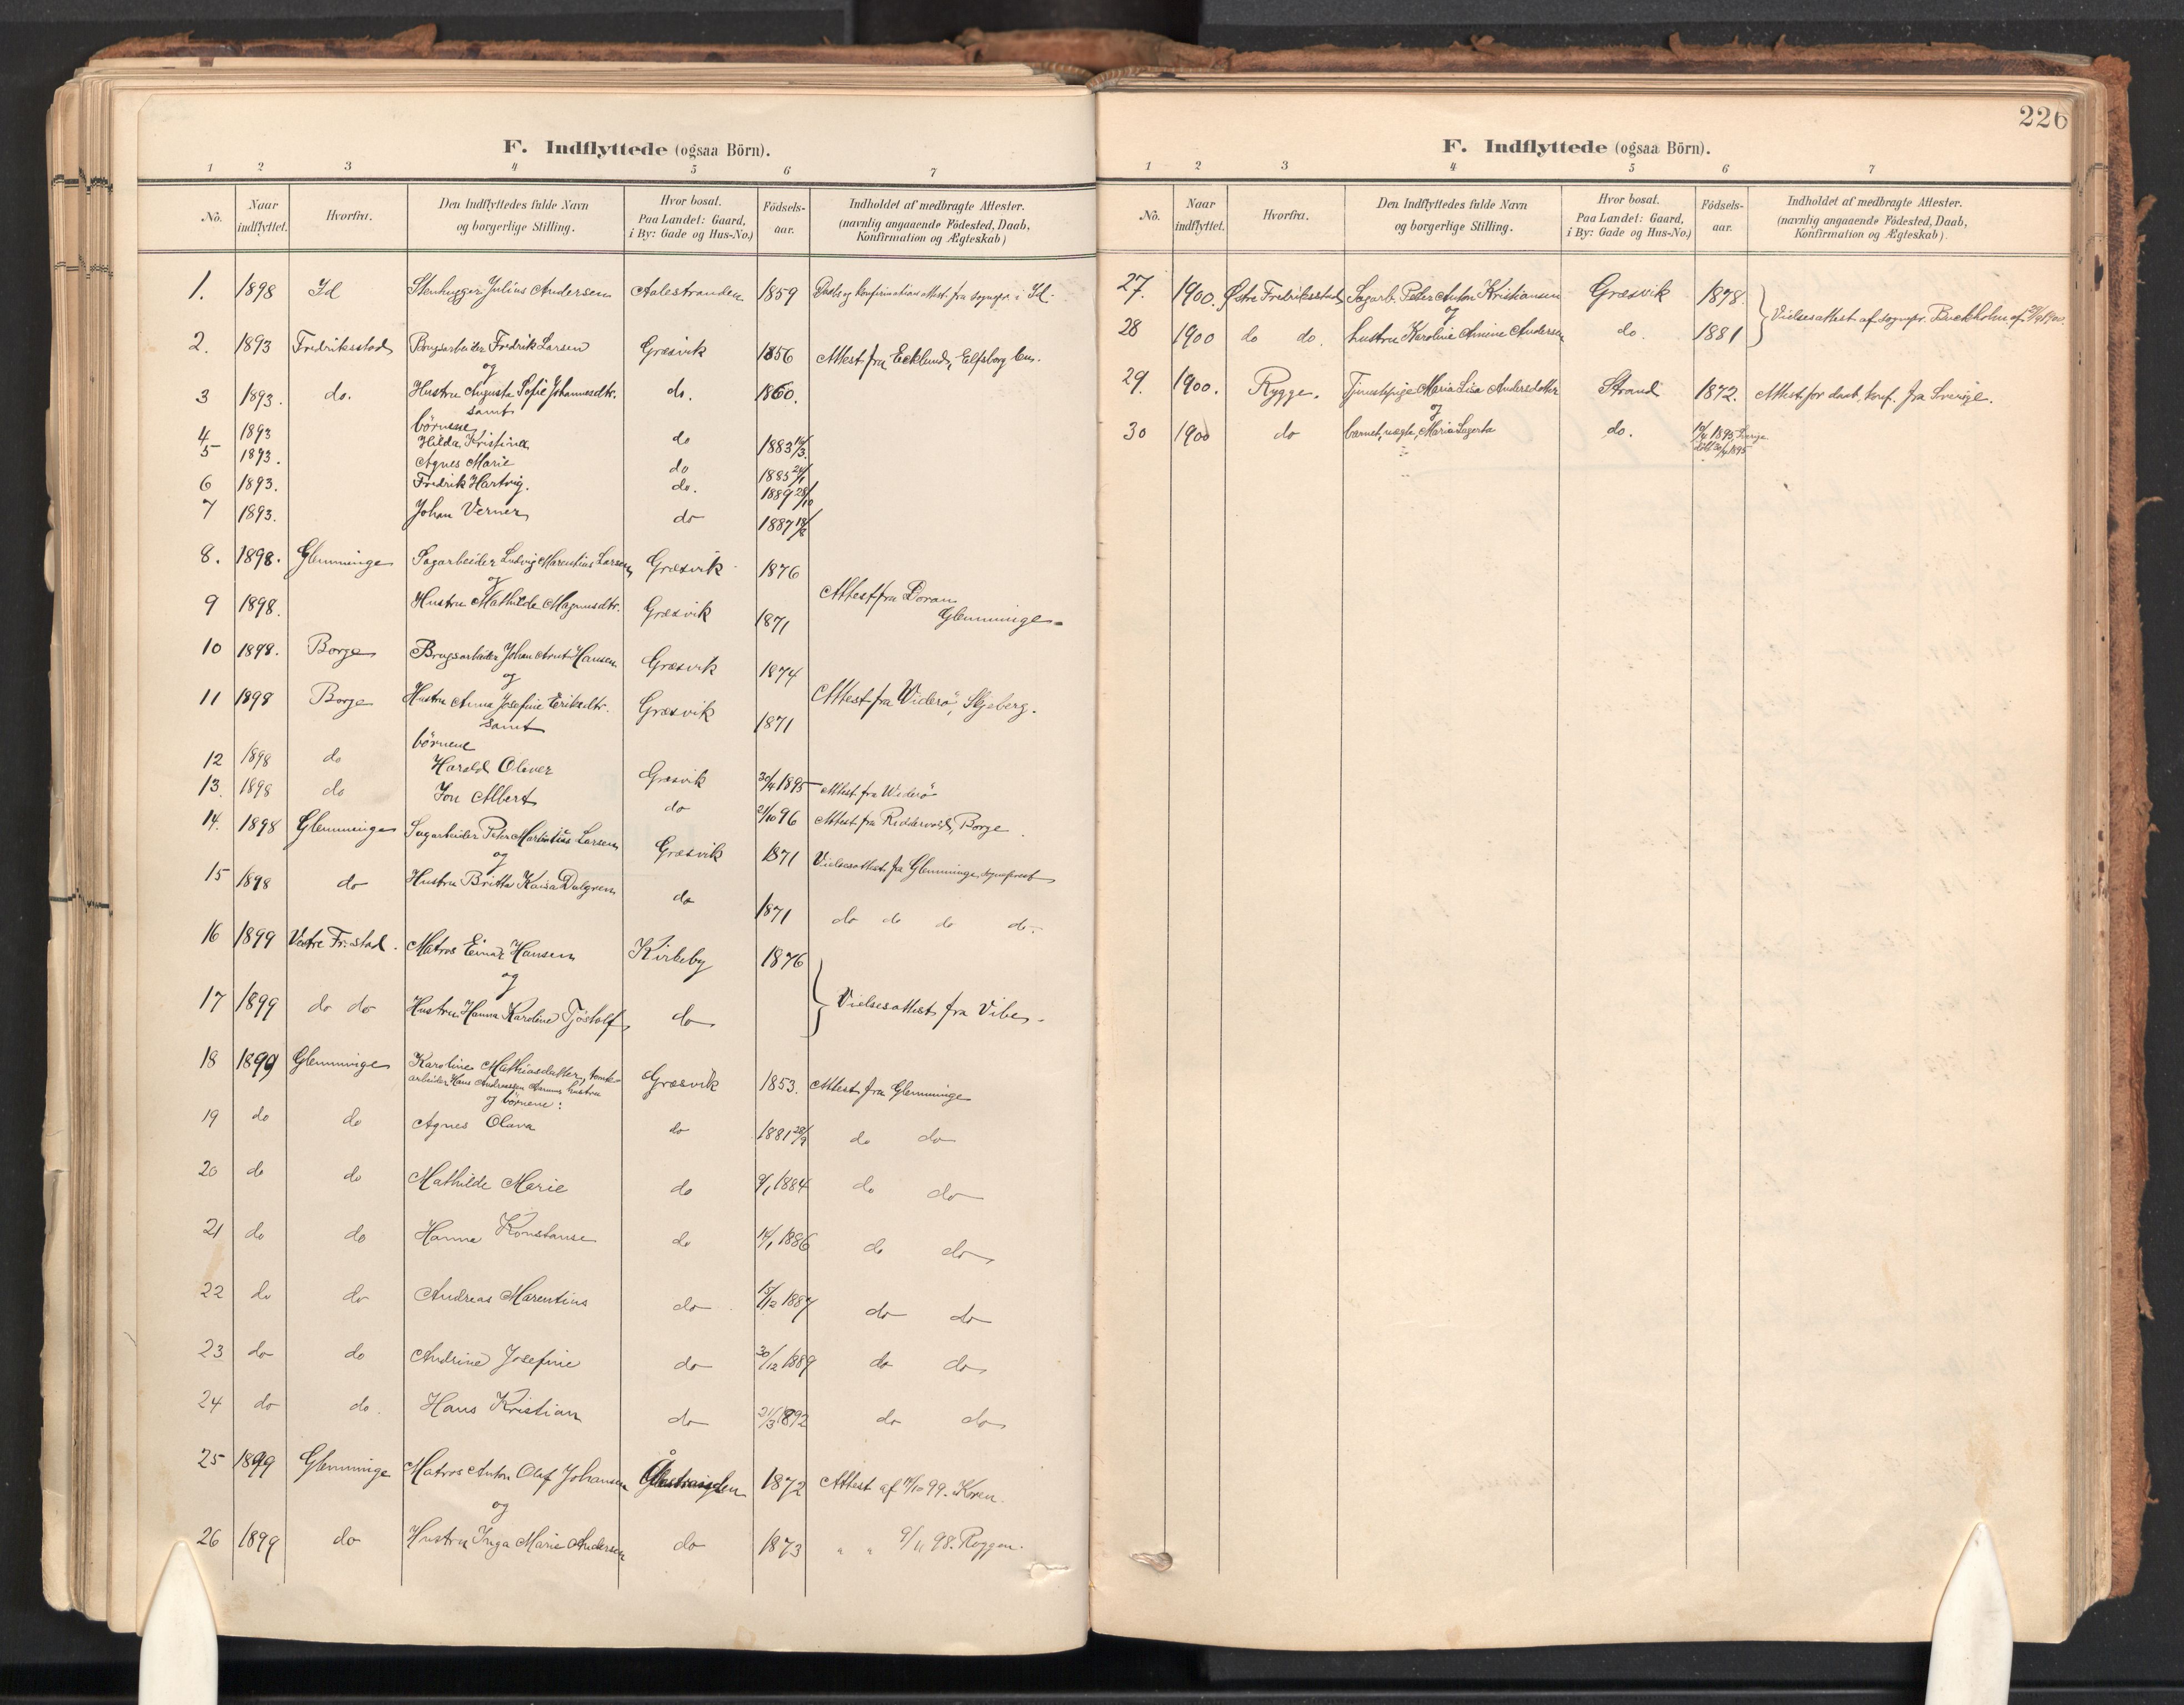 F. Indflyttede (ogsaa Börn).
1 2 3 4 5 6 7
No. Naar indflyttet. Hvorfra. Den Indflyttedes fulde Navn og borgerlige Stilling. Hvor bosat. Paa Landet: Gaard, i By: Gade og Hus-No.) Födsels-aar. Indholdet af medbragte Attester. (navnlig angaaende Födested, Daab, Konfirmation og Ægteskab)
1. 1898 Id Stenhugger Julius Andersen Aalestranden 1859 Daabs og konfirmations attest fra sognepr. i Id.
2. 1893 Fredriksstad Brugsarbeider Fredrik Larsen Græsvik 1856 Attest fra Ecklund, Elfsborg len.
og
3 1893. do. Hustru Augusta Sofie Johannesdtr. do. 1860.
samt
börnene
4 1893 Hilda Kristina do 1883
5 1893. Agnes Marie do 1885
6 1893. Fredrik Hartvig. do. 1889 28/10
7 1893. Johan Verner do 1887
8. 1898. Glemminge Sagarbeider Ludvig Marentius Larsen Græsvik 1876
og
Attest fra
9 1898. Hustru Mathilde Magnusdtr. Græsvik 1871 Glemminge
10 1898. Borge Brugsarbeider Johan Arnt Hansen Græsvik 1874
og
11 1898 Borge Hustru Anna Josefine Eriksdtr. Græsvik 1871 Attest fra Widerö, Skjeberg.
samt
börnene
12 1898 do Harald Oliver Græsvik 30/4 1895 Attest fra Widerö
13. 1898 do Jon Albert do 21/10 96 Attest fra Riddervold, Borge.
14. 1898 Glemminge Sagarbeider Peter Martinius Larsen Græsvik 1871 Vielsesattest fra Glemminge sogneprest
og
15 1898 do Hustru Britta Kaisa Dalgren do 1871 do do do do.
16 1899 Vestre Fr.stad. Matros Einar Hansen Kirkeby 1876
og
17 1899 do do Hustru Hanna Karoline Tjöstolf do Vielsesattest fra Vibe.
18 1899 Glemminge Karoline Mathiasdatter, tomte- Græsvik 1853. Attest fra Glemminge
arbeider Hans Andreassen hustru
og börnene:
19 do do Agnes Olava do 1881 28/9 do do
20 do do Mathilde Marie do 9/1 1884 do do
21 do do Hanna Konstanse do 14/1 1886 do do
22 do do Andreas Marentius do 15/12 1887 do do
23 do do Andrine Josefine do 30/12 1889 do do
24 do do. Hans Kristian do 21/3 1892 do do
25 1899 Glemminge Matros Anton Olaf Johansen 1872 Attest af 99. Koren.
og
26 1899 do Hustru Inga Marie Andersen do 1873 " " 9/11 98. Roggen.
226
F. Indflyttede (ogsaa Börn).
1 2 3 4 5 6 7
No. Naar indflyttet. Hvorfra. Den Indflyttedes fulde Navn og borgerlige Stilling. Hvor bosat. Paa Landet: Gaard, i By: Gade og Hus-No.) Födsels-aar. Indholdet af medbragte Attester. (navnlig angaaende Födested, Daab, Konfirmation og Ægteskab).
27. 1900. Østre Fredriksstad Sagarb. Peter Anton Kristiansen Græsvik 1878.
og
Vielsesattest af sognepr. Buckholm af
28 1900 do do. hustru Karoline Amine Andersen do. 1881
29. 1900. Rygge. Tjenestepige Maria Lisa Andersdotter Strand 1872. Attest for daab, konf. fra Sverige.
og
30 1900 do barnet, uægte, Maria Lagerta do. 1895 Sverige
döbt 1895